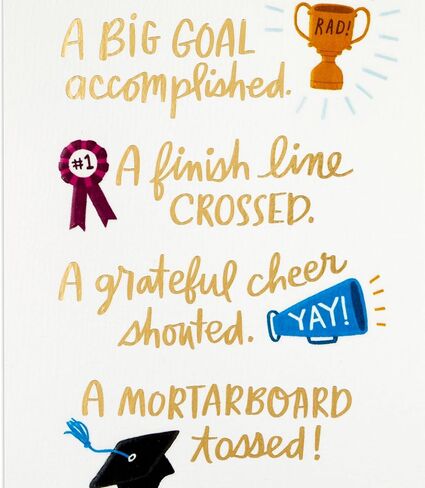 A BIG GOAL
RAD!
accomplished.
#1
A finish line
CROSSED.
A grateful cheer
shouted.
YAY!
A MORTARBOARD
tossed!